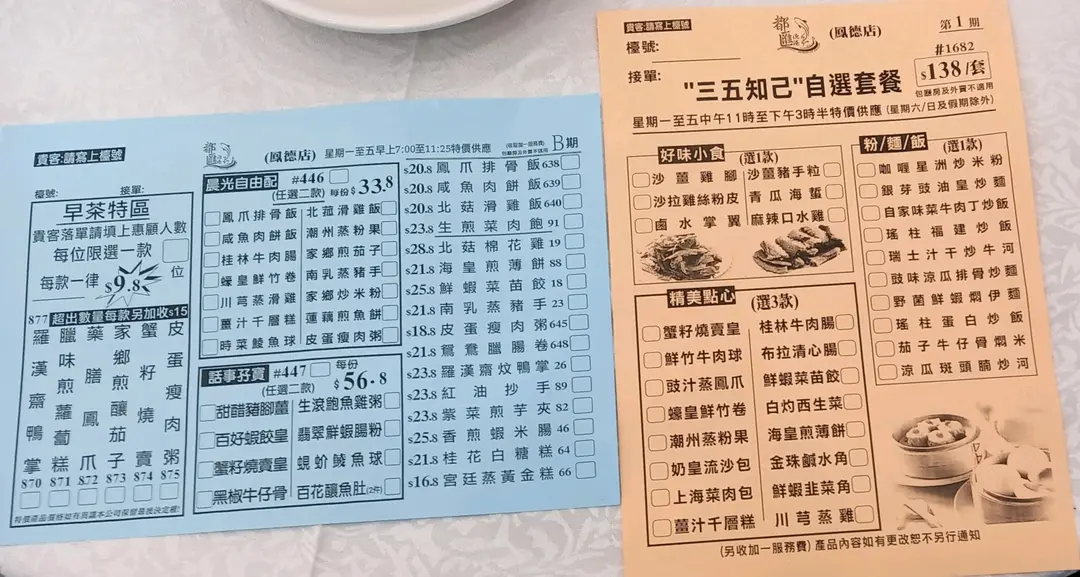 貴客:請寫上檯號
都匯漁港
(鳳德店)
星期一至五早上7:00至11:25特價供應
B期
檯號:
接單:
早茶特區
貴客落單請填上惠顧人數
每位限選一款
每款一律 $9.8
位
877 超出數量每款另加收$15
羅漢齋鴨掌 870
臘味煎蘿蔔糕 871
藥膳鳳爪 872
家鄉煎釀茄子 873
蟹籽燒賣 874
皮蛋瘦肉粥 875
特價產品價格如有爭議本公司保留最後決定權!
晨光自由配 #446
(任選二款) 每份$33.8
鳳爪排骨飯 北菰滑雞飯
咸魚肉餅飯 潮州蒸粉果
桂林牛肉腸 家鄉煎茄子
蠔皇鮮竹卷 南乳蒸豬手
川芎蒸滑雞 家鄉炒米粉
薑汁千層糕 蓮藕煎魚餅
時菜鯪魚球 皮蛋瘦肉粥
話事孖寶 #447
(任選二款) 每份 $56.8
甜醋豬腳薑 生滾鮑魚雞粥
百好蝦餃皇 翡翠鮮蝦腸粉
蟹籽燒賣皇 蜆蚧鯪魚球
黑椒牛仔骨 百花釀魚肚(2件)
$20.8 鳳爪排骨飯 638
$20.8 咸魚肉餅飯 639
$20.8 北菇滑雞飯 640
$23.8 生煎菜肉飽 91
$28.8 北菇棉花雞 19
$21.8 海皇煎薄餅 88
$25.8 鮮蝦菜苗餃 18
$21.8 南乳蒸豬手 23
$18.8 皮蛋瘦肉粥 645
$21.8 鴛鴦臘腸卷 648
$23.8 羅漢齋炆鴨掌 26
$23.8 紅油抄手 89
$23.8 紫菜煎芋夾 82
$25.8 香煎蝦米腸 46
$21.8 桂花白糖糕 64
$16.8 宮廷蒸黃金糕 66
貴客:請寫上檯號
都匯漁港
(鳳德店)
第1期
檯號:
#1682
接單:
"三五知己"自選套餐
$138/套
包廳房及外賣不適用
星期一至五中午11時至下午3時半特價供應 (星期六/日及假期除外)
好味小食 (選1款)
沙薑雞腳 沙薑豬手粒
沙拉雞絲粉皮 青瓜海蜇
鹵水掌翼 麻辣口水雞
精美點心 (選3款)
蟹籽燒賣皇 桂林牛肉腸
鮮竹牛肉球 布拉清心腸
豉汁蒸鳳爪 鮮蝦菜苗餃
蠔皇鮮竹卷 白灼西生菜
潮州蒸粉果 海皇煎薄餅
奶皇流沙包 金珠鹹水角
上海菜肉包 鮮蝦韭菜角
薑汁千層糕 川芎蒸雞
粉/麵/飯 (選1款)
咖喱星洲炒米粉
銀芽豉油皇炒麵
自家味菜牛肉丁炒飯
瑤柱福建炒飯
瑞士汁干炒牛河
豉味涼瓜排骨炒麵
野菌鮮蝦燜伊麵
瑤柱蛋白炒飯
茄子牛仔骨燜米
涼瓜斑頭腩炒河
(另收加一服務費) 產品內容如有更改恕不另行通知